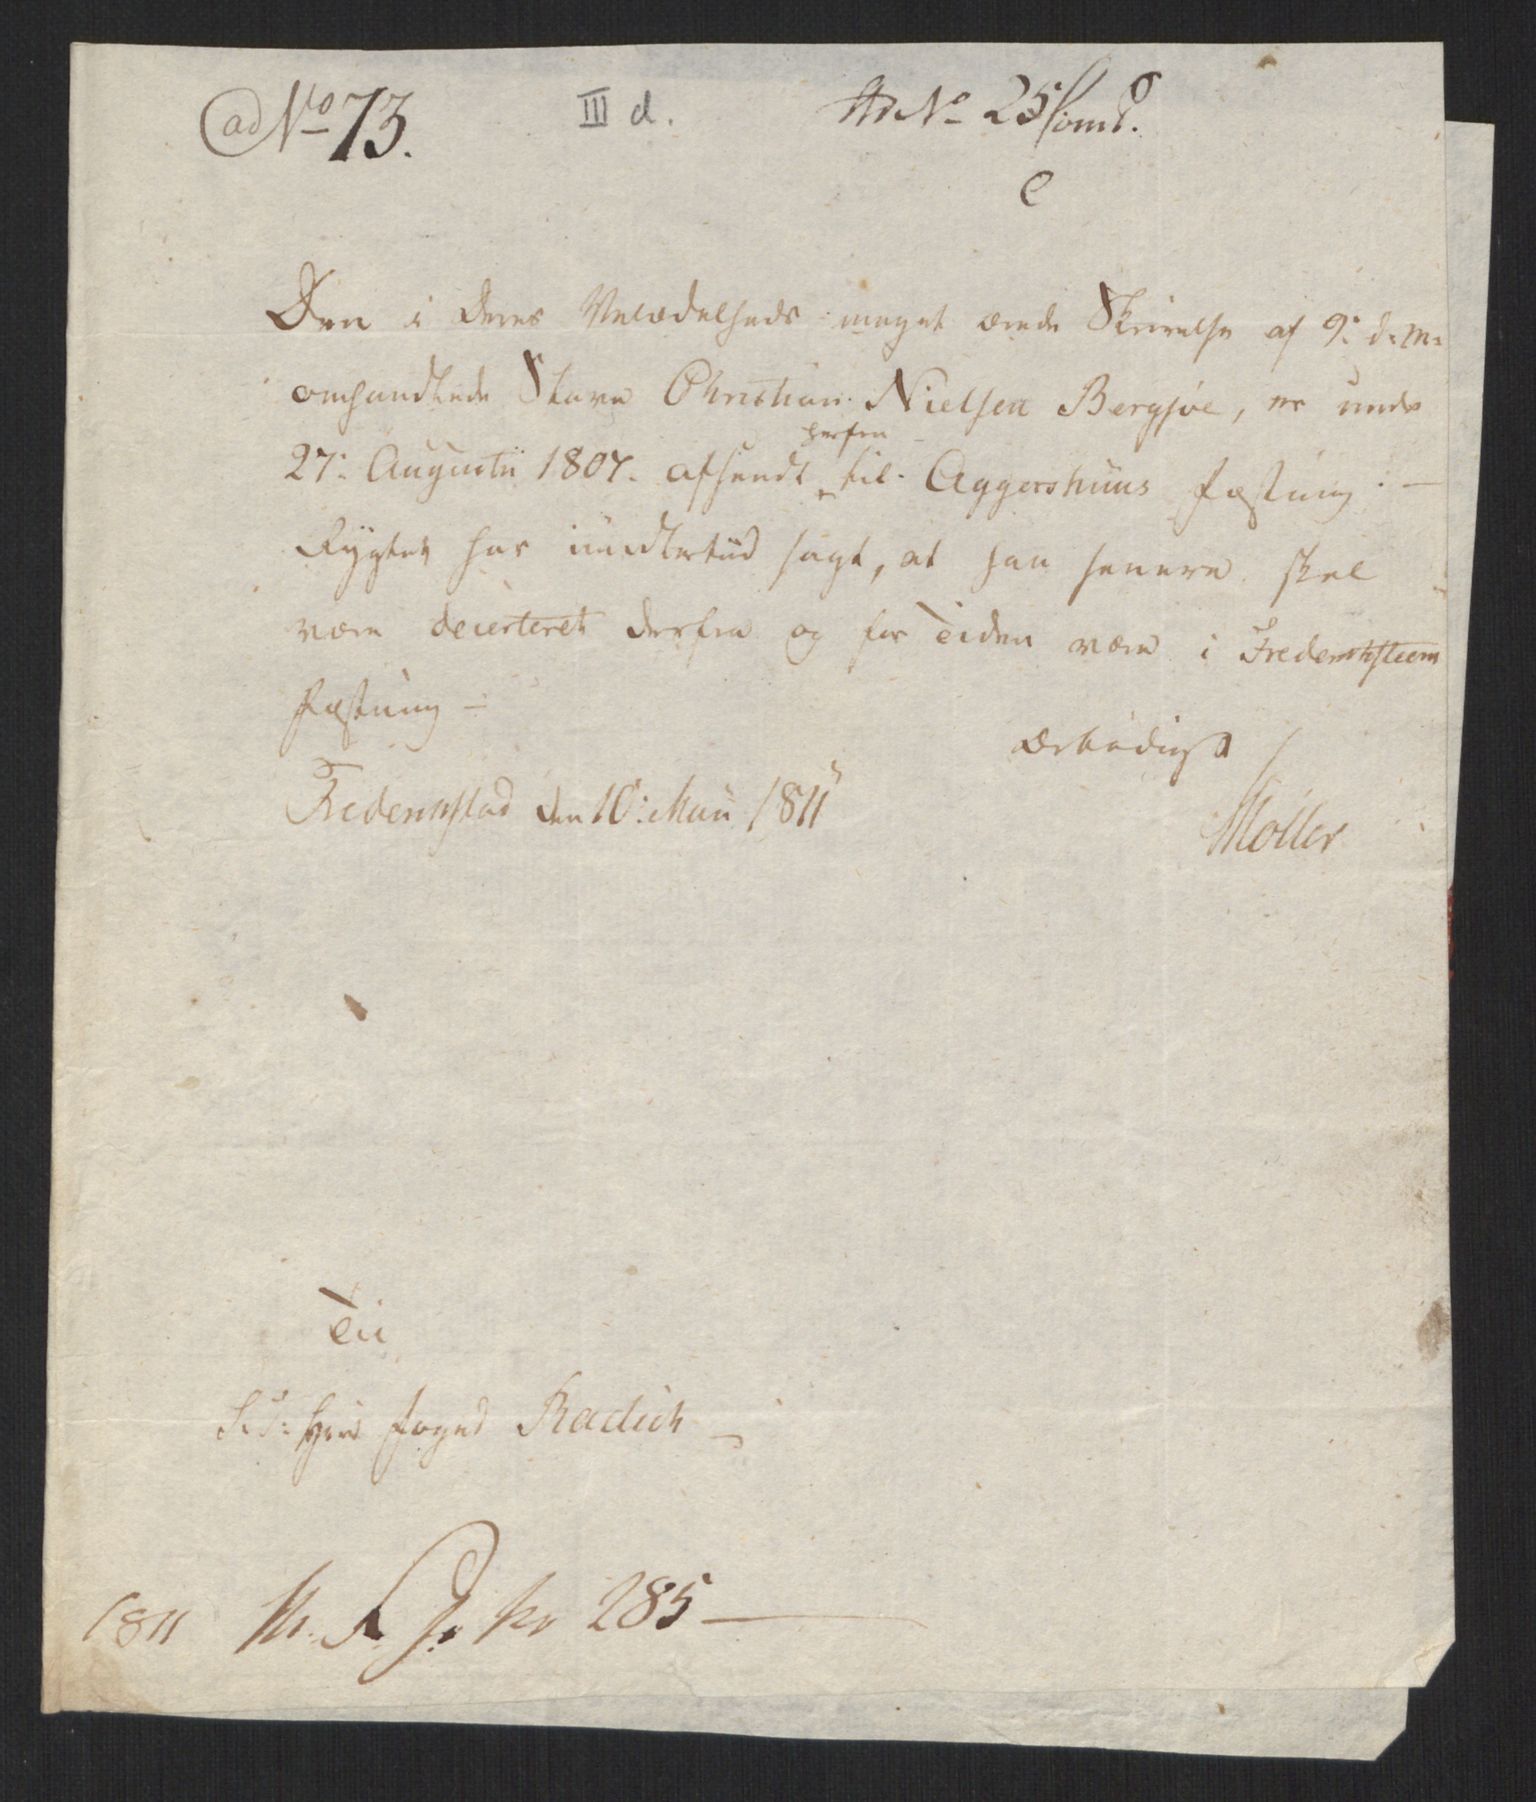 ad No 73.
III d.
Ad No 25
e
Den i Deres Velædelheds meget ærede Skrivelse af 9: d: M:
omhandlede Slave Christian Nielsen Bergsøe, er under
27: Augustii 1807. afsendt herfra til Aggershuus Fæstning. —
Rygtet har imidlertiid sagt, at han senere skal
være deserteret derfra og for Tiden være i Fredericksteens
Fæstning —
Ærbødigst
Frederickstad den 10: Maii 1811
Møller
Til
S: T: Herr Foged Radich
1811 No 285 —